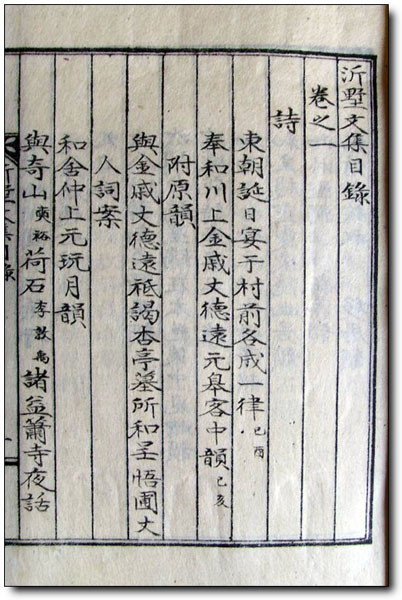 沂墅文集目錄
卷之一
詩
東朝誕日宴于村前各成一律 己酉
奉和川上金戚丈德遠元皋客中韻 己亥
附原韻
與金戚丈德遠祗謁杏亭墓所和呈悟圃丈
人詞案
和舍仲上元玩月韻
與奇山 荷石 李敦禹 諸益蕭寺夜話
沂墅文集目錄